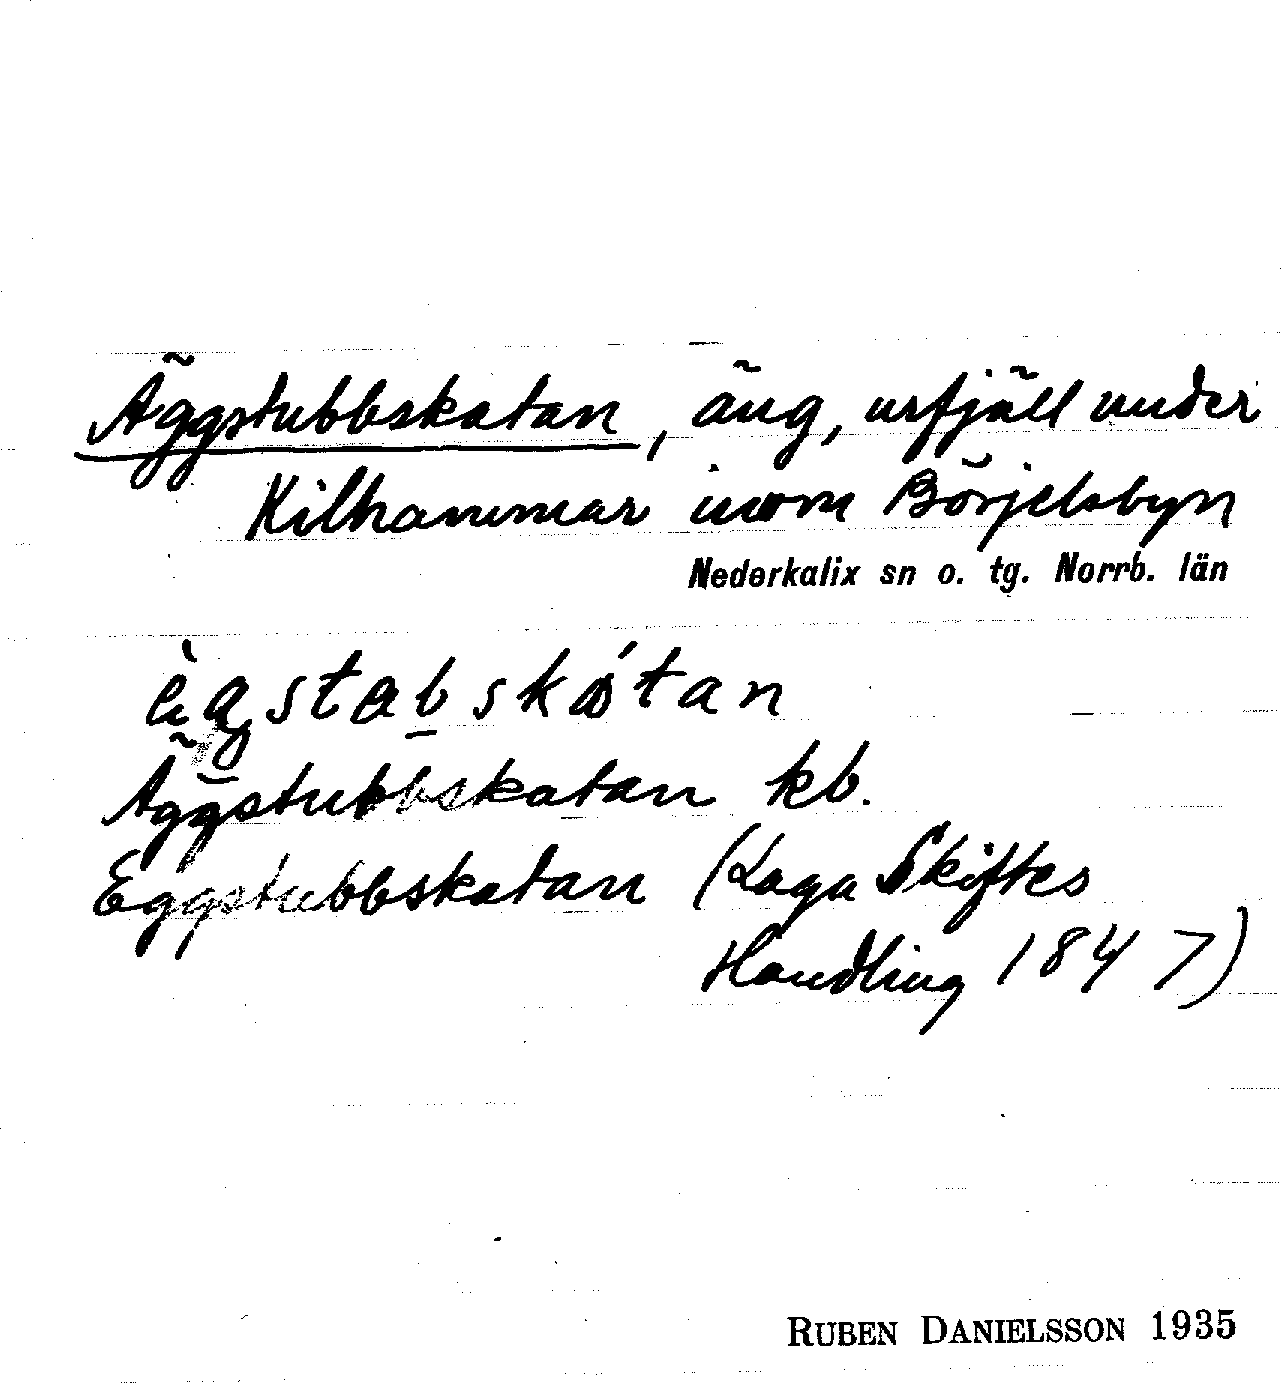 Äggstubbskatan, äng, urfjäll under
Kilhammar inom Börjelsbyn
Nederkalix sn o. tg. Norrb. län
Äggstubbskatan kb.
Eggstubbskatan (Laga Skiftes
Handling 1847)
RUBEN DANIELSSON 1935